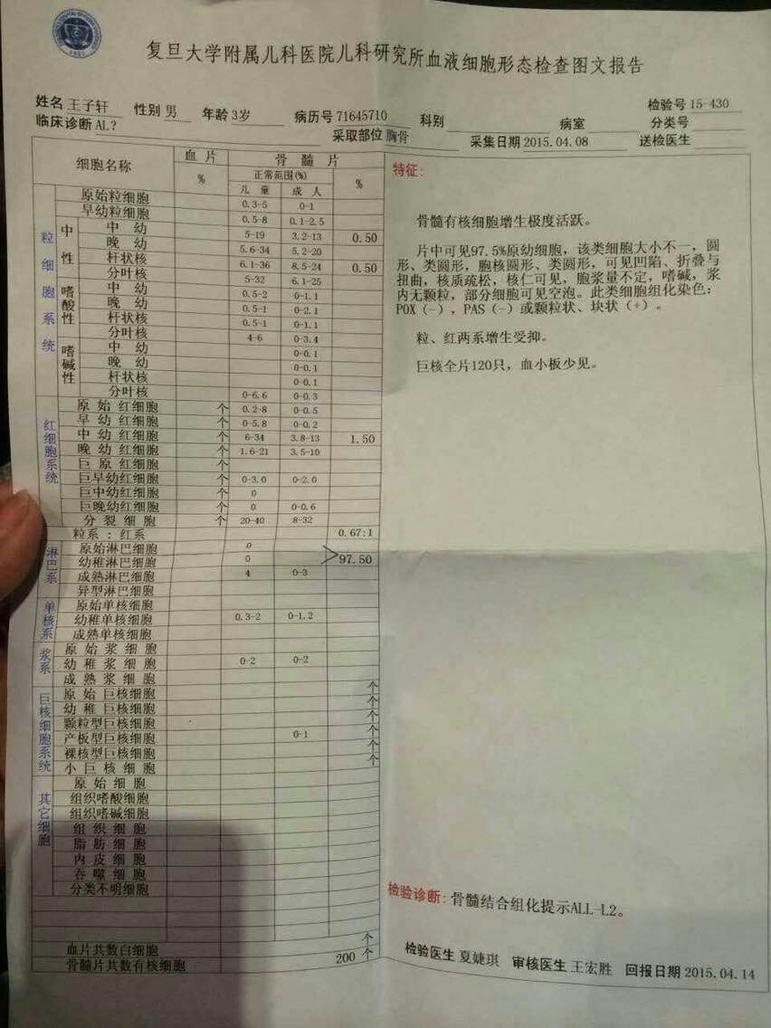 复旦大学附属儿科医院儿科研究所血液细胞形态检查图文报告
姓名 王子轩 性别 男 年龄 3岁 病历号 71645710 科别 病室 检验号 15-430
临床诊断 AL? 采取部位 胸骨 采集日期 2015.04.08 分类号 送检医生
细胞名称 血片 % 骨髓片
正常范围(%) %
儿童 成人
粒细胞系统
原始粒细胞 0.3-5 0-1
早幼粒细胞 0.5-8 0.1-2.5
中性 中幼 5-19 3.2-13 0.50
晚幼 5.6-34 5.2-20
杆状核 6.1-36 8.5-24 0.50
分叶核 5-32 6.1-25
嗜酸性 中幼 0.5-2 0-1.1
晚幼 0.5-1 0-2.1
杆状核 0.5-1 0-1.1
分叶核 4-6 0-3.4
嗜碱性 中幼 0-0.1
晚幼 0-0.1
杆状核 0-0.1
分叶核 0-6.6 0-0.3
红细胞系统
原始红细胞 个 0.2-8 0-0.5
早幼红细胞 个 0-5.8 0-0.2
中幼红细胞 个 6-34 3.8-13 1.50
晚幼红细胞 个 1.6-21 3.5-10
巨原红细胞 个
巨早幼红细胞 个 0-3.0 0-2.0
巨中幼红细胞 个 0
巨晚幼红细胞 个 0 0-0.6
分裂细胞 个 20-40 8-32
粒系:红系 0.67:1
淋巴系
原始淋巴细胞 0
幼稚淋巴细胞 0 97.50
成熟淋巴细胞 4 0-3
异型淋巴细胞
单核系
原始单核细胞
幼稚单核细胞 0.3-2 0-1.2
成熟单核细胞
浆系
原始浆细胞
幼稚浆细胞 0-2 0-2
成熟浆细胞
巨核细胞系统
原始巨核细胞 个
幼稚巨核细胞 个
颗粒型巨核细胞 个
产板型巨核细胞 0-1 个
裸核型巨核细胞 个
小巨核细胞 个
其它细胞
原始细胞
组织嗜酸细胞
组织嗜碱细胞
组织细胞
脂肪细胞
内皮细胞
吞噬细胞
分类不明细胞
血片共数白细胞 个
骨髓片共数有核细胞 200 个
特征:
骨髓有核细胞增生极度活跃。
片中可见97.5%原幼细胞，该类细胞大小不一，圆
形、类圆形，胞核圆形、类圆形，可见凹陷、折叠与
扭曲，核质疏松，核仁可见，胞浆量不定，嗜碱，浆
内无颗粒，部分细胞可见空泡。此类细胞组化染色:
POX（-），PAS（-）或颗粒状、块状（+）。
粒、红两系增生受抑。
巨核全片120只，血小板少见。
检验诊断: 骨髓结合组化提示ALL-L2。
检验医生 夏婕琪 审核医生 王宏胜 回报日期 2015.04.14